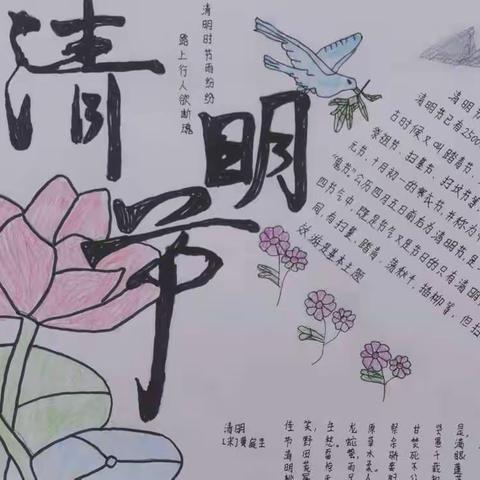 清明节
清明时节雨纷纷
路上行人欲断魂
清明节
清明节已有2500
古时候又叫踏青节、
祭祖节、扫墓节、扫坟节等
元节、十月初一的寒衣节,并称为
"鬼节"公历四月五日前后为清明节,是
四节气中,既是节气又是节日的只有清明
同,有扫墓,踏青,荡秋千,插柳等,但扫
效游是基本主题
清明
[宋]黄庭坚
佳节清明桃
笑,野田荒冢
生愁。雷惊天
龙蛇蛰,雨足
原草木柔。人
祭余骄妾妇
甘焚死不公
贤愚千载知
是,满眼蓬